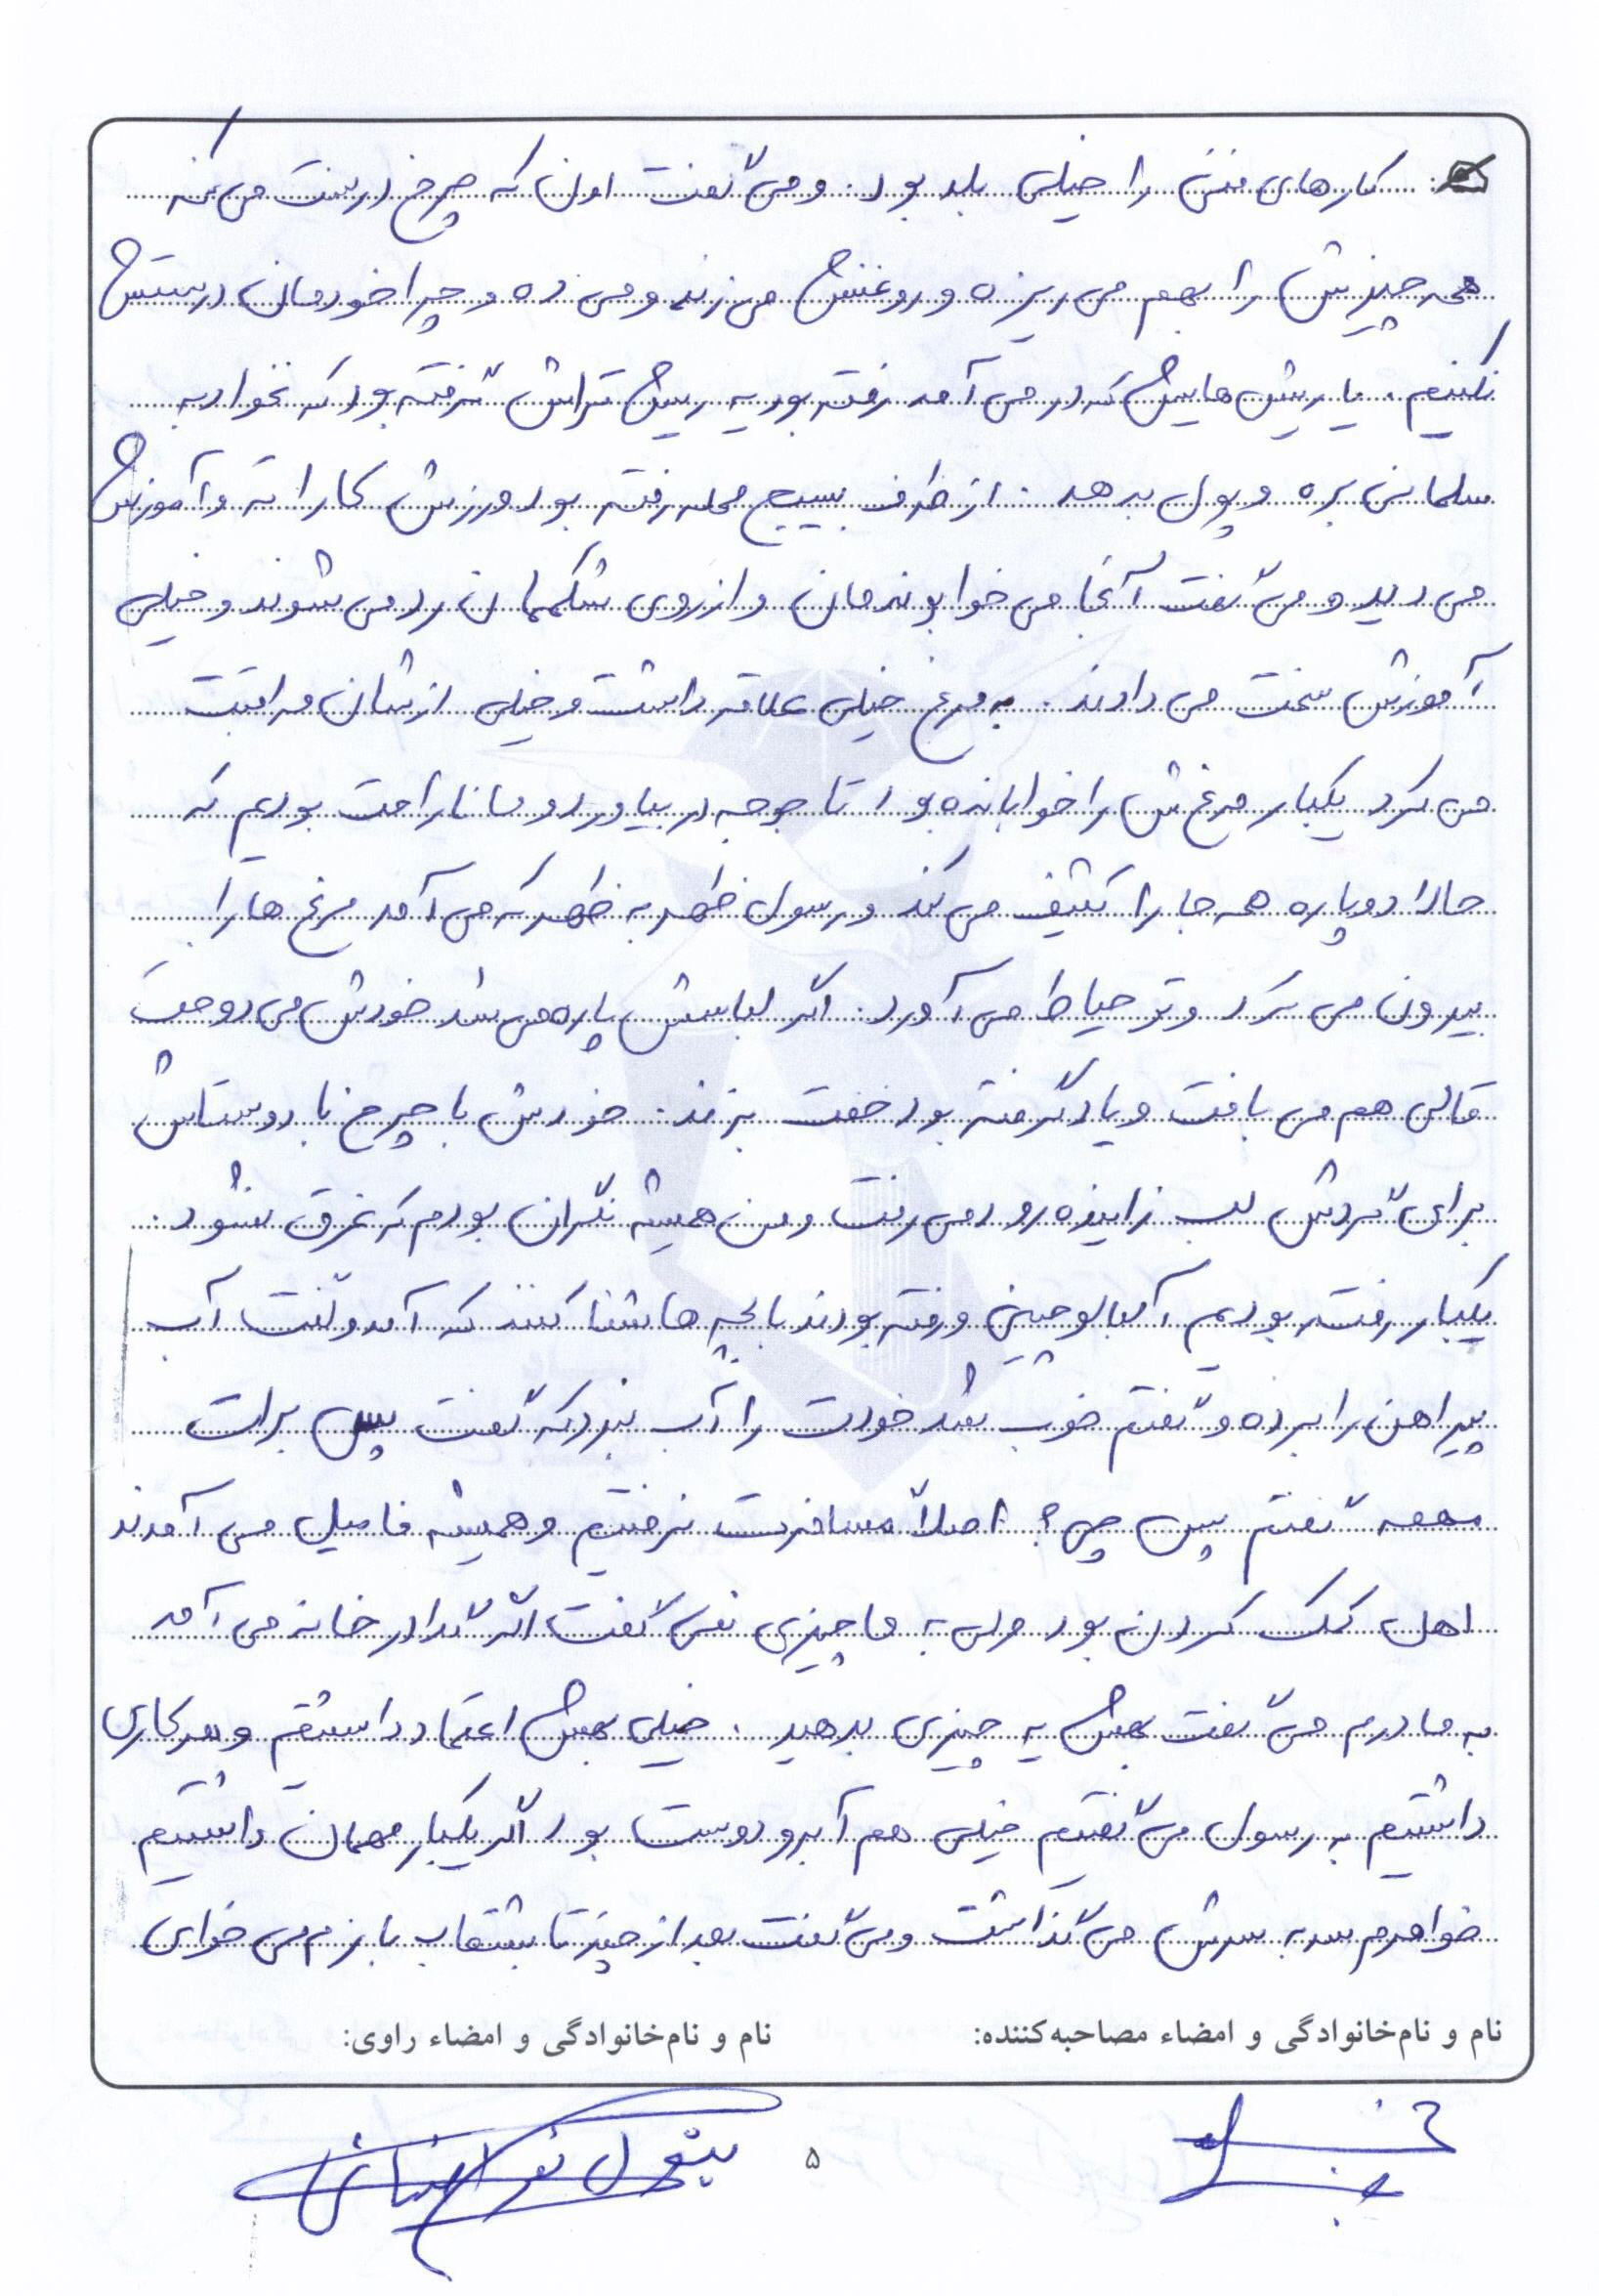 کارهای فنی را خیلی بلد بود. و می گفت اون که چرخ درست می کنه
همه چیزش را بهم می ریزه و روغنش می زند و می ده و چرا خودمان درستش
نکنیم. یا ریش هایش که در می آمد رفته بود یه ریش تراش گرفته بود که نخواد به
سلمانی بره و پول بدهد. از طرف بسیج محله رفته بود ورزش کاراته و آموزش
می دید و می گفت آنجا می خوابوندمان و از روی شکممان رد می شوند و خیلی
آموزش سخت می دادند. به مرغ خیلی علاقه داشت و خیلی ازشان مراقبت
می کرد یکبار مرغش را خوابانده بود تا جوجه در بیاورد و ما ناراحت بودیم که
حالا دوباره همه جا را کثیف می کند و رسول ظهر به ظهر که می آمد مرغ ها را
بیرون می کرد و تو حیاط می آورد. اگر لباسش پاره می شد خودش می دوخت
قالی هم می بافت و یاد گرفته بود خفت بزند. خودش با چرخ با دوستاش
برای گردش لب زاینده رود می رفت و من همیشه نگران بودم که غرق نشود.
یکبار رفته بودیم آلبالو چینی و رفته بودند با بچه ها شنا کنند که آمد و گفت آب
پیراهن را برده و گفتم خوب شد خودت را آب نبرد که گفت پس برات
مهمه گفتم پس چی؟ اصلاً مسافرت نرفتیم و همیشه فامیل می آمدند
اهل کمک کردن بود ولی به ما چیزی نمی گفت اگر گدا در خانه می آمد
به مادرم می گفت بهش یه چیزی بدهید. خیلی بهش اعتماد داشتیم و هر کاری
داشتیم به رسول می گفتیم خیلی هم آبرو دوست بود اگر یکبار مهمان داشتیم
خواهرم سر به سرش می گذاشت و می گفت بعد از چند تا بشقاب باز م می خوای
نام و نام‌خانوادگی و امضاء مصاحبه‌کننده: نام و نام‌خانوادگی و امضاء راوی:
۵